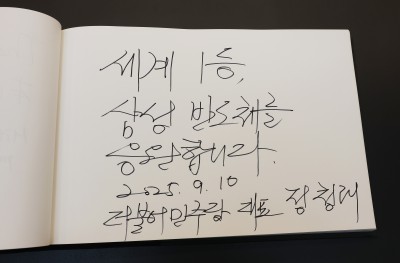 세계 1등,
삼성 반도체를
응원합니다.
2025. 9. 10
더불어민주당 대표 정청래